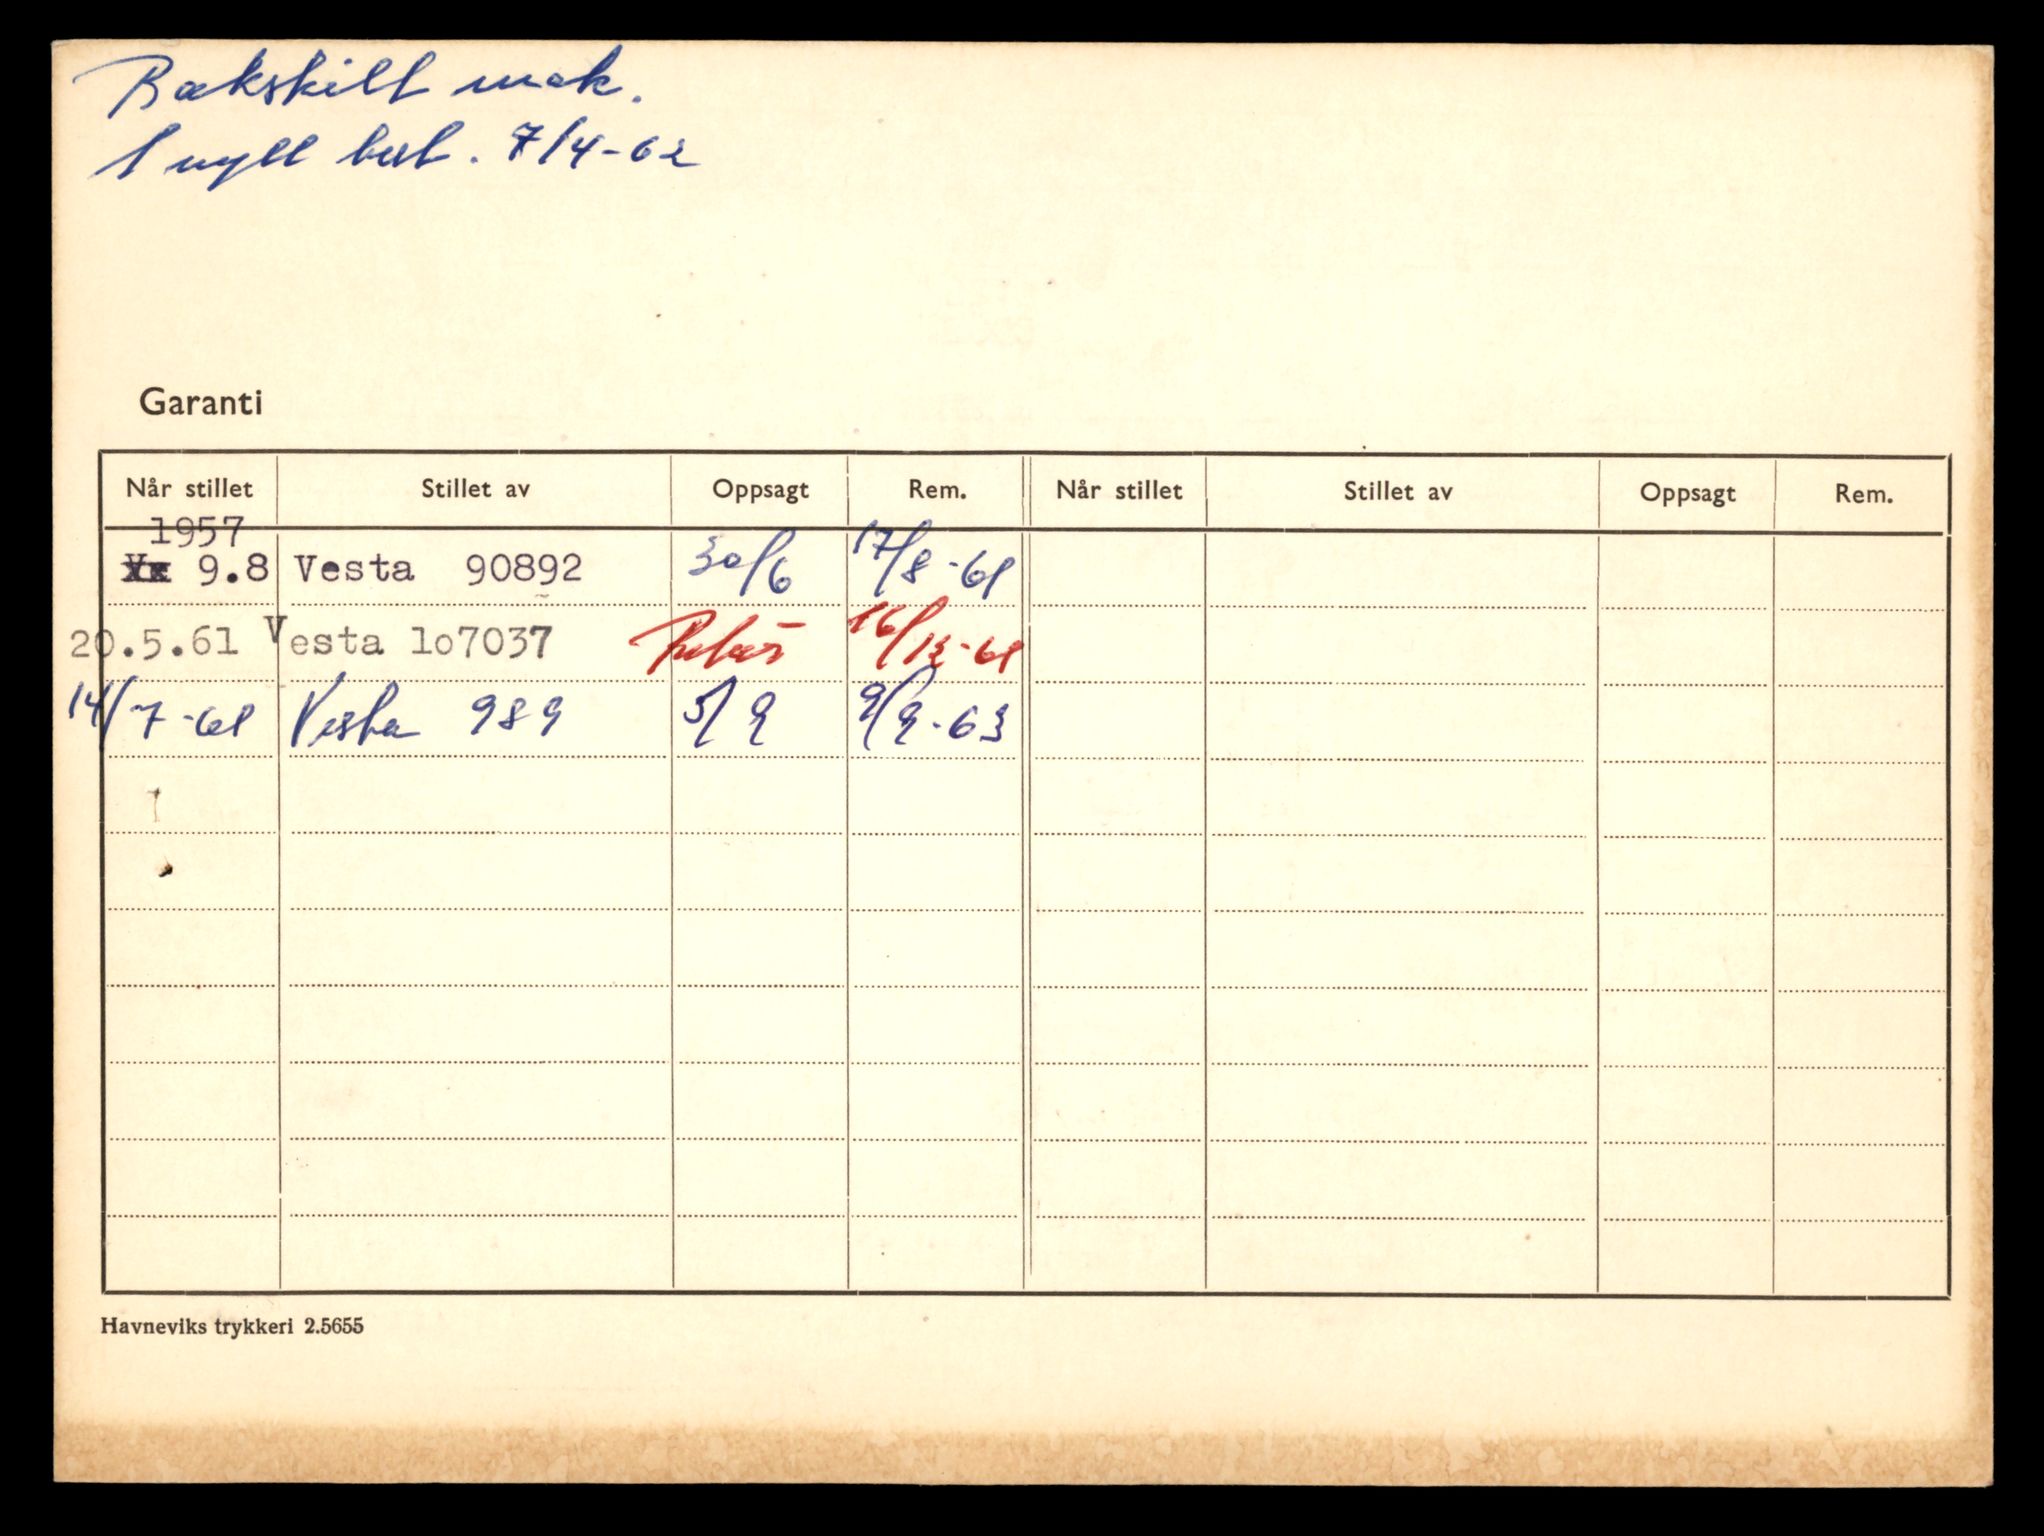 Bakskilt mak.
1 nytt best. 7/4-62
Garanti
Når stillet Stillet av Oppsagt Rem. Når stillet Stillet av Oppsagt Rem.
1957
9.8 Vesta 90892 30/6 17/8-61
20.5.61 Vesta 1o7037 16/12-61
14/7-61 Vesta 989 5/9 9/9-63
Havneviks trykkeri 2.5655